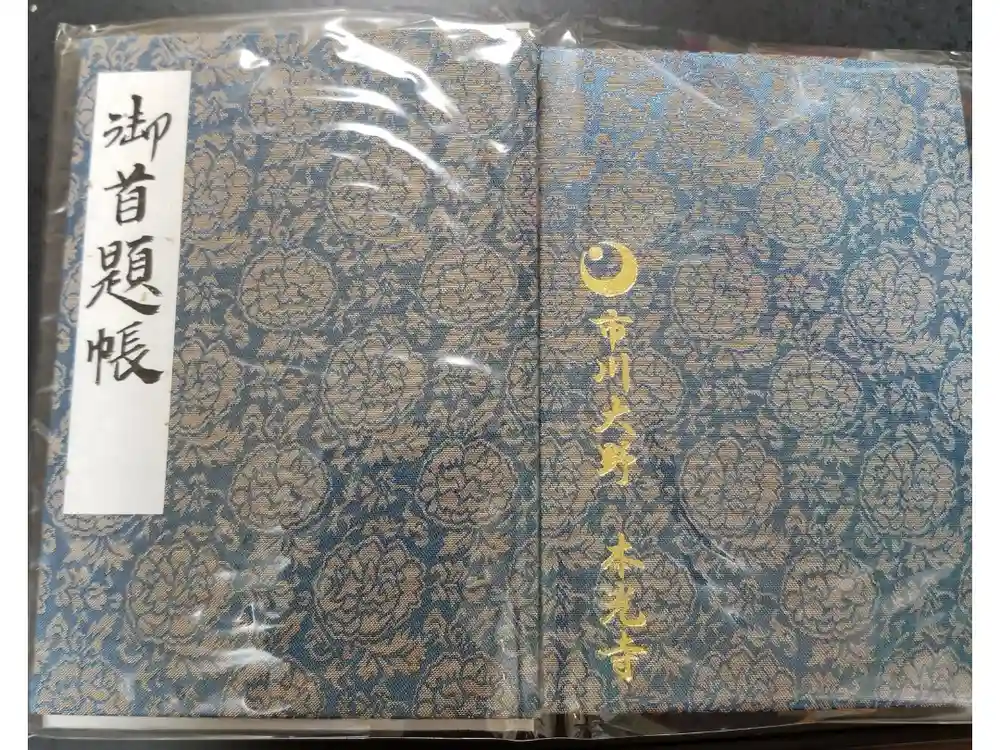 御首題帳
市川大野 本光寺